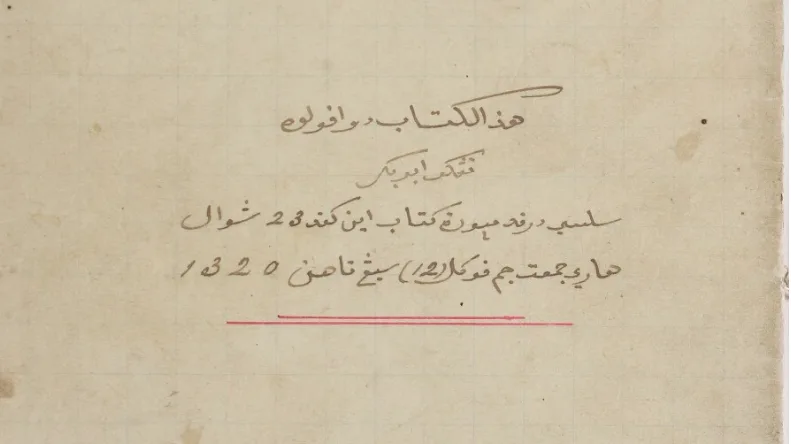 هذ الكتاب دوافوله
تڠكو ابو بكر
سلسي درفد ميورة كتاب اين كفد 23 شوال
هاري جمعت جم فوكل (12) سيڠ تاهن 1320